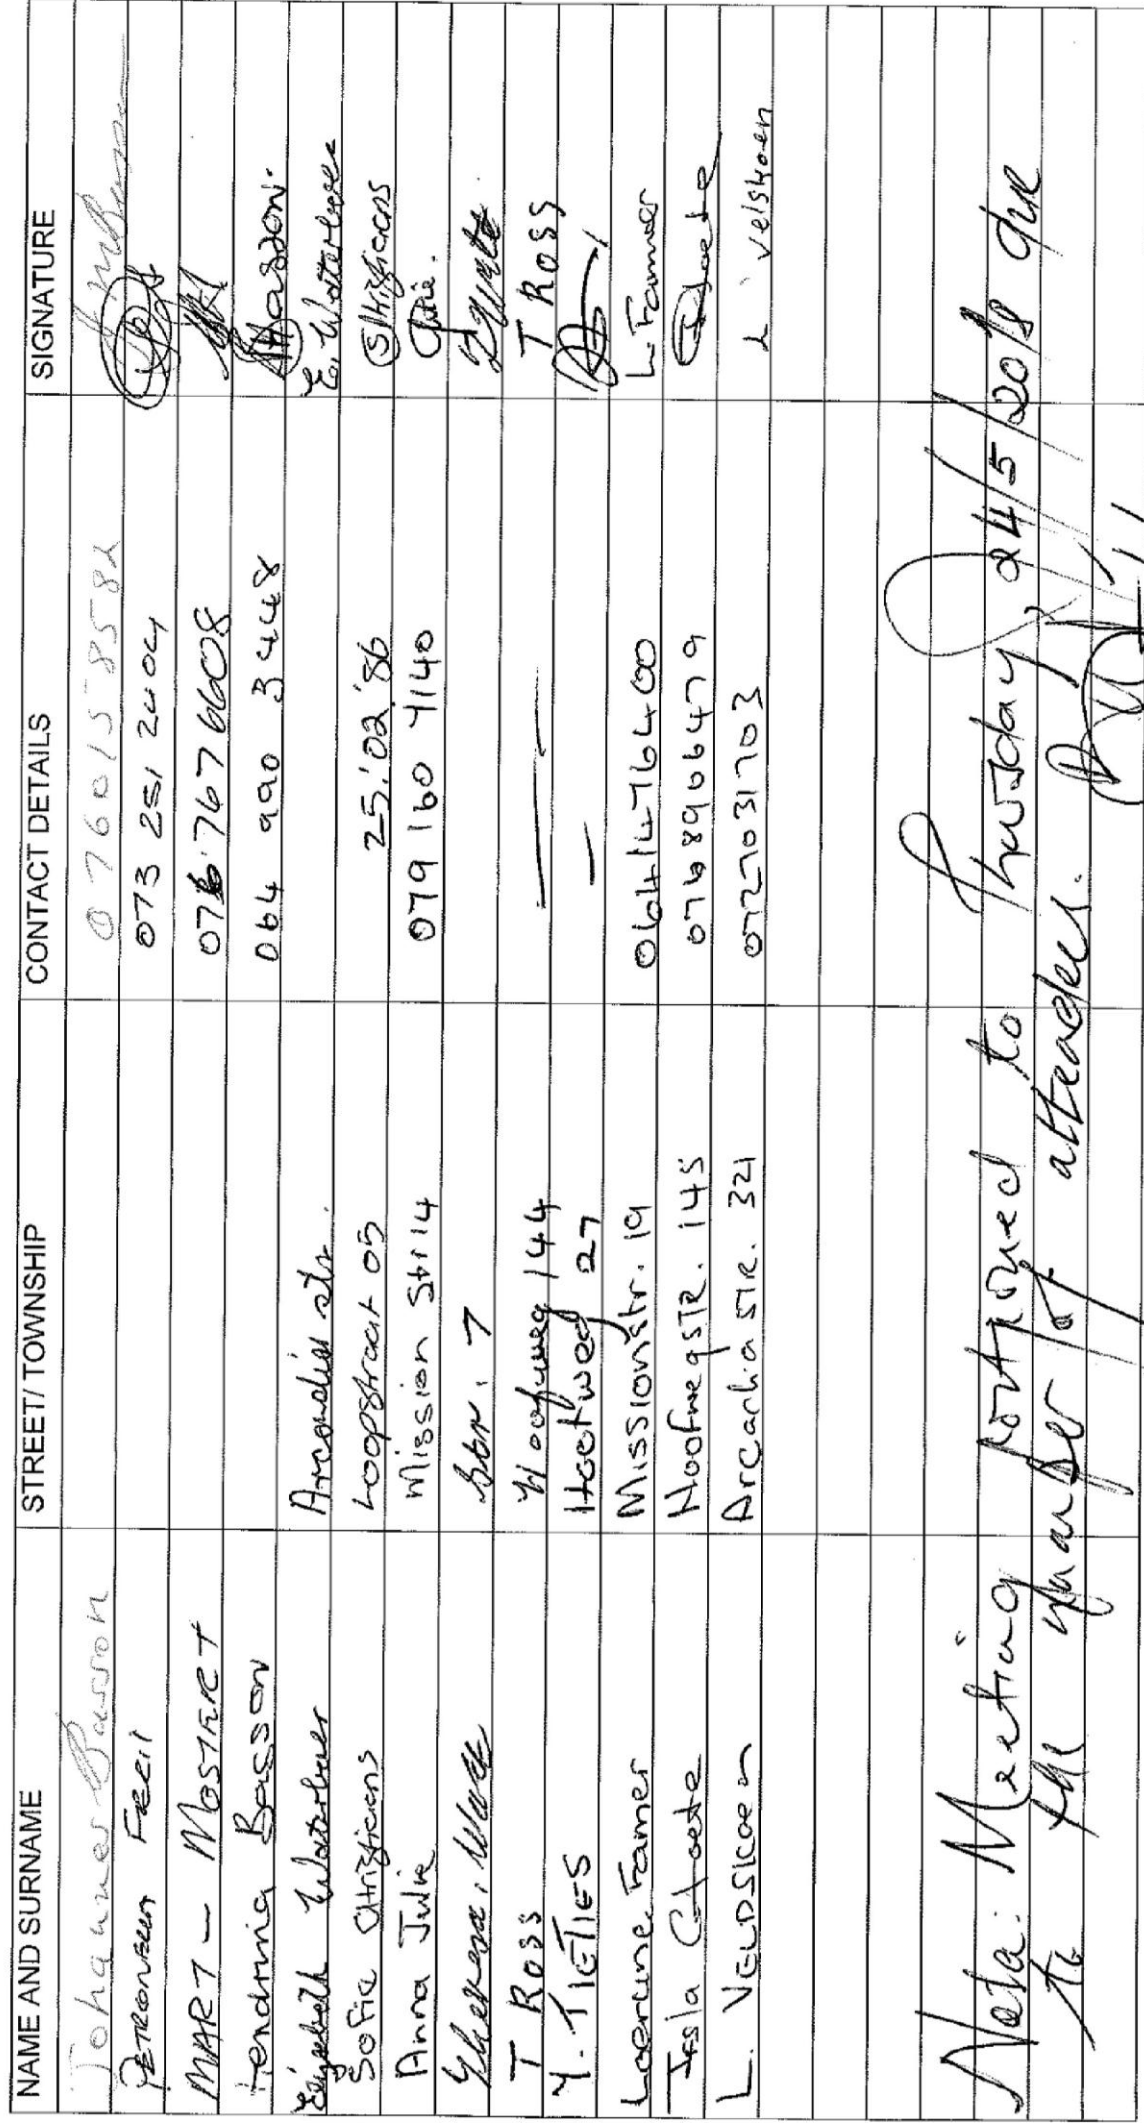 NAME AND SURNAME STREET/ TOWNSHIP CONTACT DETAILS SIGNATURE
Johannes Basson 0760158582
PETRONELLA 073 251 2404
MART - MOSTERT 0767676608
Hendrina Basson 064 990 3448 Basson.
Elizabeth Waterboer Arcondia str. E. Waterboer
Sofia Loopstraat 05 25.'02'86
Anna Julie Mission Str 14 079 160 7140 Julie.
7
T Ross Hoofweg 144 — T Ross
M. TIETIES Hoofweg 27 —
Loerune. Farmer Missionstr. 19 061476400 L. Farmer
Cloete HoofwegSTR. 145 0768906479 Cloete
L. VELDSKOEN Arcadia STR. 321 0727031703 L Velskoen
Nota: Meeting postponed to Thursday, 24/5/2018 due
to the number of attendees.